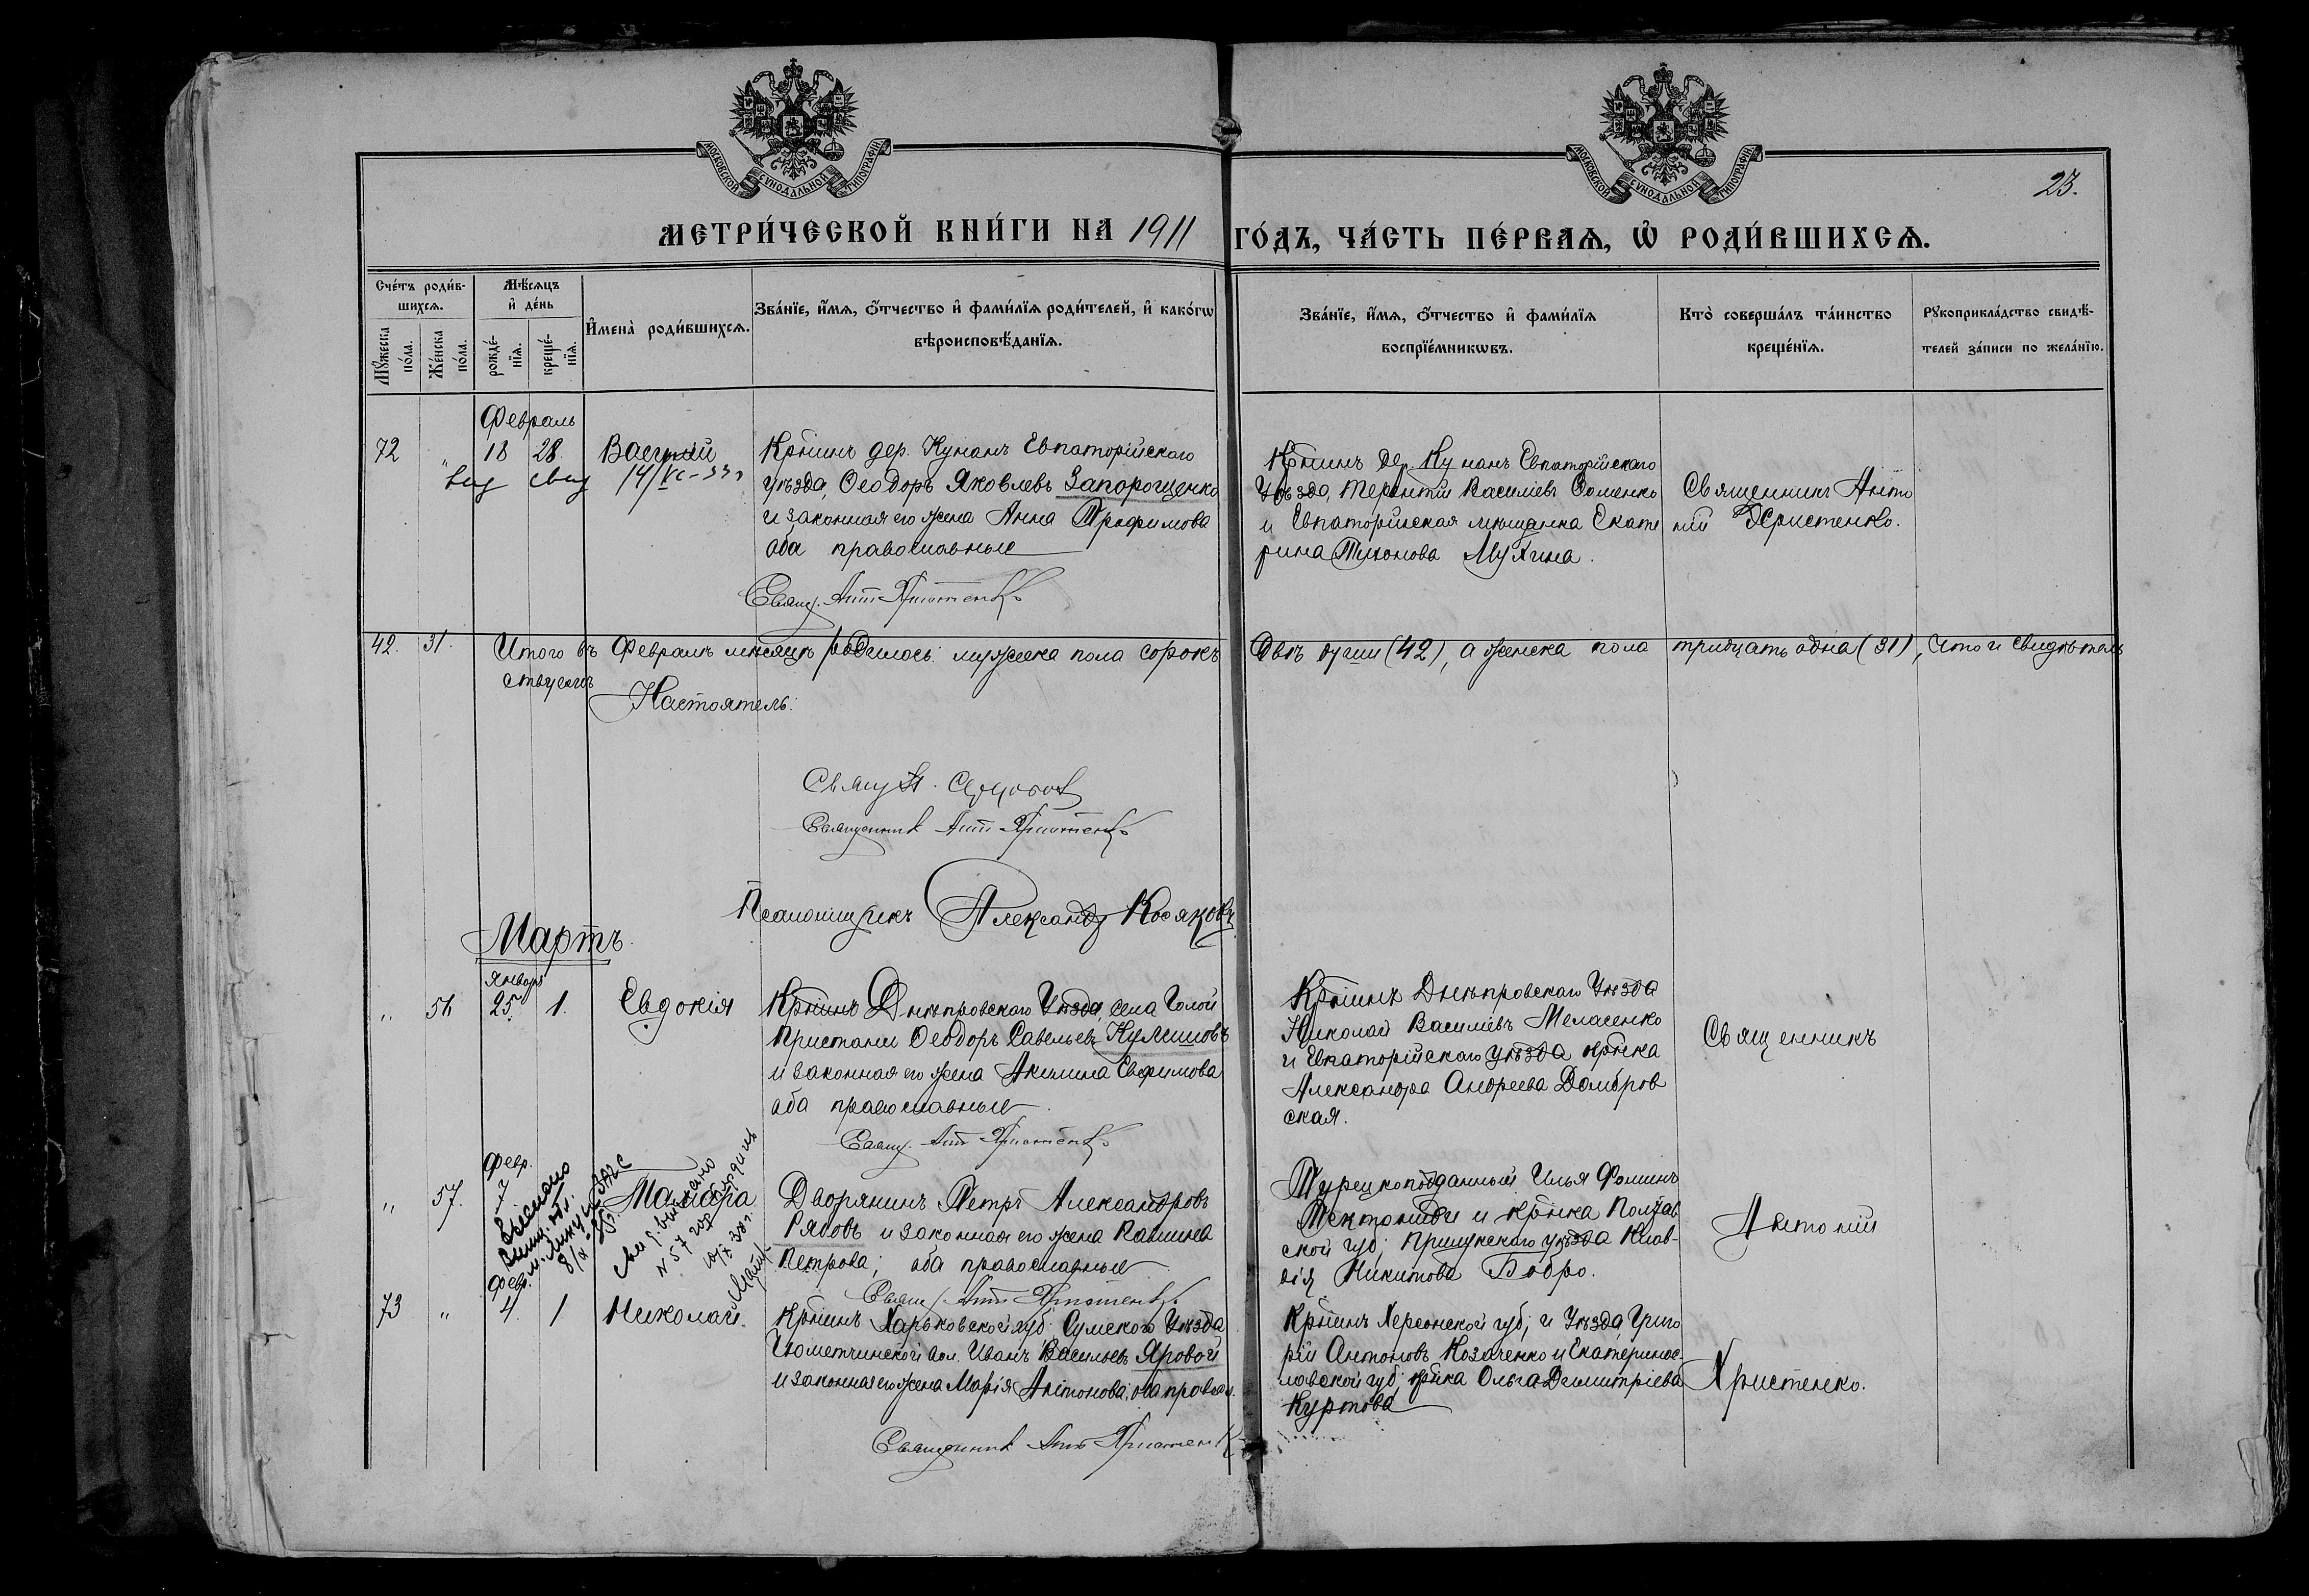 МОСКОВСКОЙ СѴНОДАЛЬНОЙ ТИПОГРАФІИ
МОСКОВСКОЙ СѴНОДАЛЬНОЙ ТИПОГРАФІИ
23.
МЕТРИ́ЧЕСКОЙ КНИ́ГИ НА 1911 ГО́ДЪ, ЧА́СТЬ ПЕ́РВАЯ, Ѡ҆ РОДИ́ВШИХСЯ.
Сче́тъ роди́в-
шихся.
Мꙋжеска по́ла.
Же́нска по́ла.
Мѣ́сяцъ
и҆ де́нь
рожде́-
нїя.
креще́-
нїя.
И҆мена̀ роди́вшихся.
Зва́нїе, и҆́мя, ѻ҆́тчество и҆ фами́лїя роди́телей, и҆ како́гѡ
вѣроисповѣ́данїя.
Зва́нїе, и҆́мя, ѻ҆́тчество и҆ фами́лїя
воспрїе́мникѡвъ.
Кто̀ соверша́лъ та́инство
креще́нїя.
Рꙋкоприкла́дство свидѣ́-
телей за́писи по жела́нїю.
Февраль
72 " 18 28. Василій
14/
Крѣинъ дер. Кунанъ Евпаторійскаго
уѣзда, Ѳеодоръ Яковлевъ Запорощенко
и законная его жена Анна Трофимова
оба православные
Свящ. Ант Христенко
Крѣинъ дер. Кунанъ Евпаторійскаго
уѣзда, Терентій Василіевъ Фоменко
и Евпаторійская мѣщанка Екате
рина Тихонова Мухина.
Священникъ Анто
ній Христенко.
42. 31. Итого въ Февралѣ мѣсяцѣ родилось: мужеска пола сорокъ двѣ души (42), а женска пола тридцать одна (31), что и свидѣтель
ствуемъ
Настоятель:
Свящ
Священник Ант Христенко
Псаломщикъ Александр Косяковъ
Мартъ.
Января
" 56 25. 1. Евдокія
Крѣинъ Днѣпровскаго Уѣзда, села Голой
Пристани Ѳеодоръ Савельевъ Кулишовъ
и законная его жена Акилина Евфимова
оба православные
Свящ. Ант Христенко
Крѣинъ Днѣпровскаго Уѣзда
Николай Василіевъ Меласенко
и Евпаторійскаго уѣзда крѣнка
Александра Андреева Домбров
ская.
Священникъ
Февр.
" 57. Тамара
Дворянинъ Петръ Александровъ
Рябовъ и законная его жена
Петрова; оба православные
Свящ. Ант Христенко
Турецкоподданный Илья Фоминъ
и крѣнка Полтав
ской губ; Прилукскаго уѣзда Клав-
дія Никитова Бобро.
Антоній
ЗАГС
N 57
Февр.
73 " 4. 1 Николай.
Крѣинъ Харьковской губ. Сумскаго Уѣзда
вол. Иванъ Васильевъ Яровой
и законная его жена Марія Антонова; оба правосл.
Священник Ант Христенк
Крѣинъ Херсонской губ; и Уѣзда Григо
рій Антоновъ Козаченко и Екатеринос
лавской губ; крѣнка Ольга Димитріева
Куртова
Христенко.